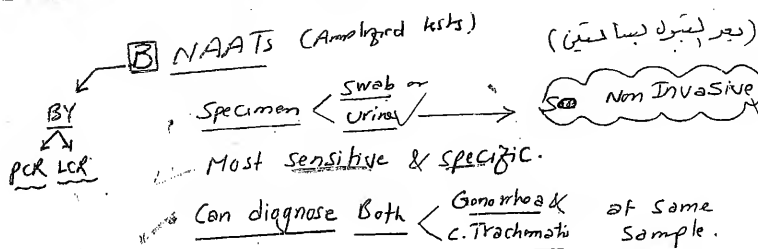 B NAATs (Amplified tests)
(بعد التبول بساعتين)
BY
PCR LCR
Specimen < Swab or
Urine ✓ → So Non Invasive
Most sensitive & specific.
Can diagnose Both < Gonorrhoea &
C. Trachmatis at same
Sample.